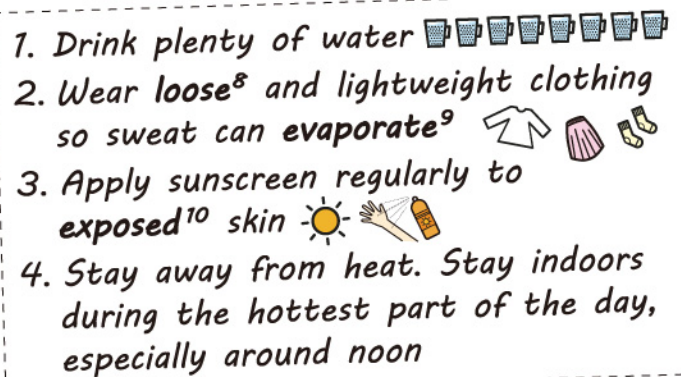 1. Drink plenty of water
2. Wear loose⁸ and lightweight clothing
so sweat can evaporate⁹
3. Apply sunscreen regularly to
exposed¹⁰ skin
4. Stay away from heat. Stay indoors
during the hottest part of the day,
especially around noon